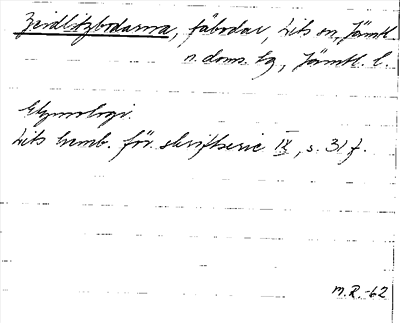 Zeidlitzbodarna, fäbodar, Lits sn, Jämtl.
n. doms. hg, Jämtl. l.
Etymologi.
Lits hemb. för. skriftserie IX, s. 31 f.
M.R.-62